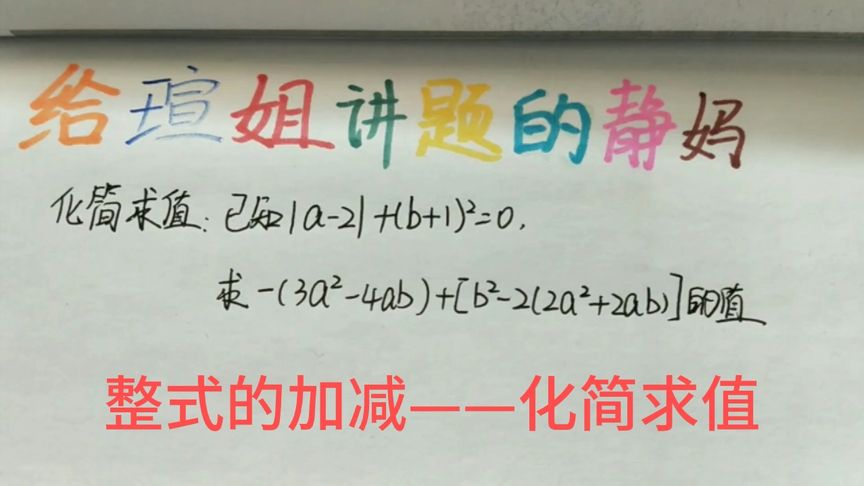 给瑄姐讲题的静妈
化简求值：已知|a-2|+(b+1)²=0，
求-(3a²-4ab)+[b²-2(2a²+2ab)]的值
整式的加减——化简求值